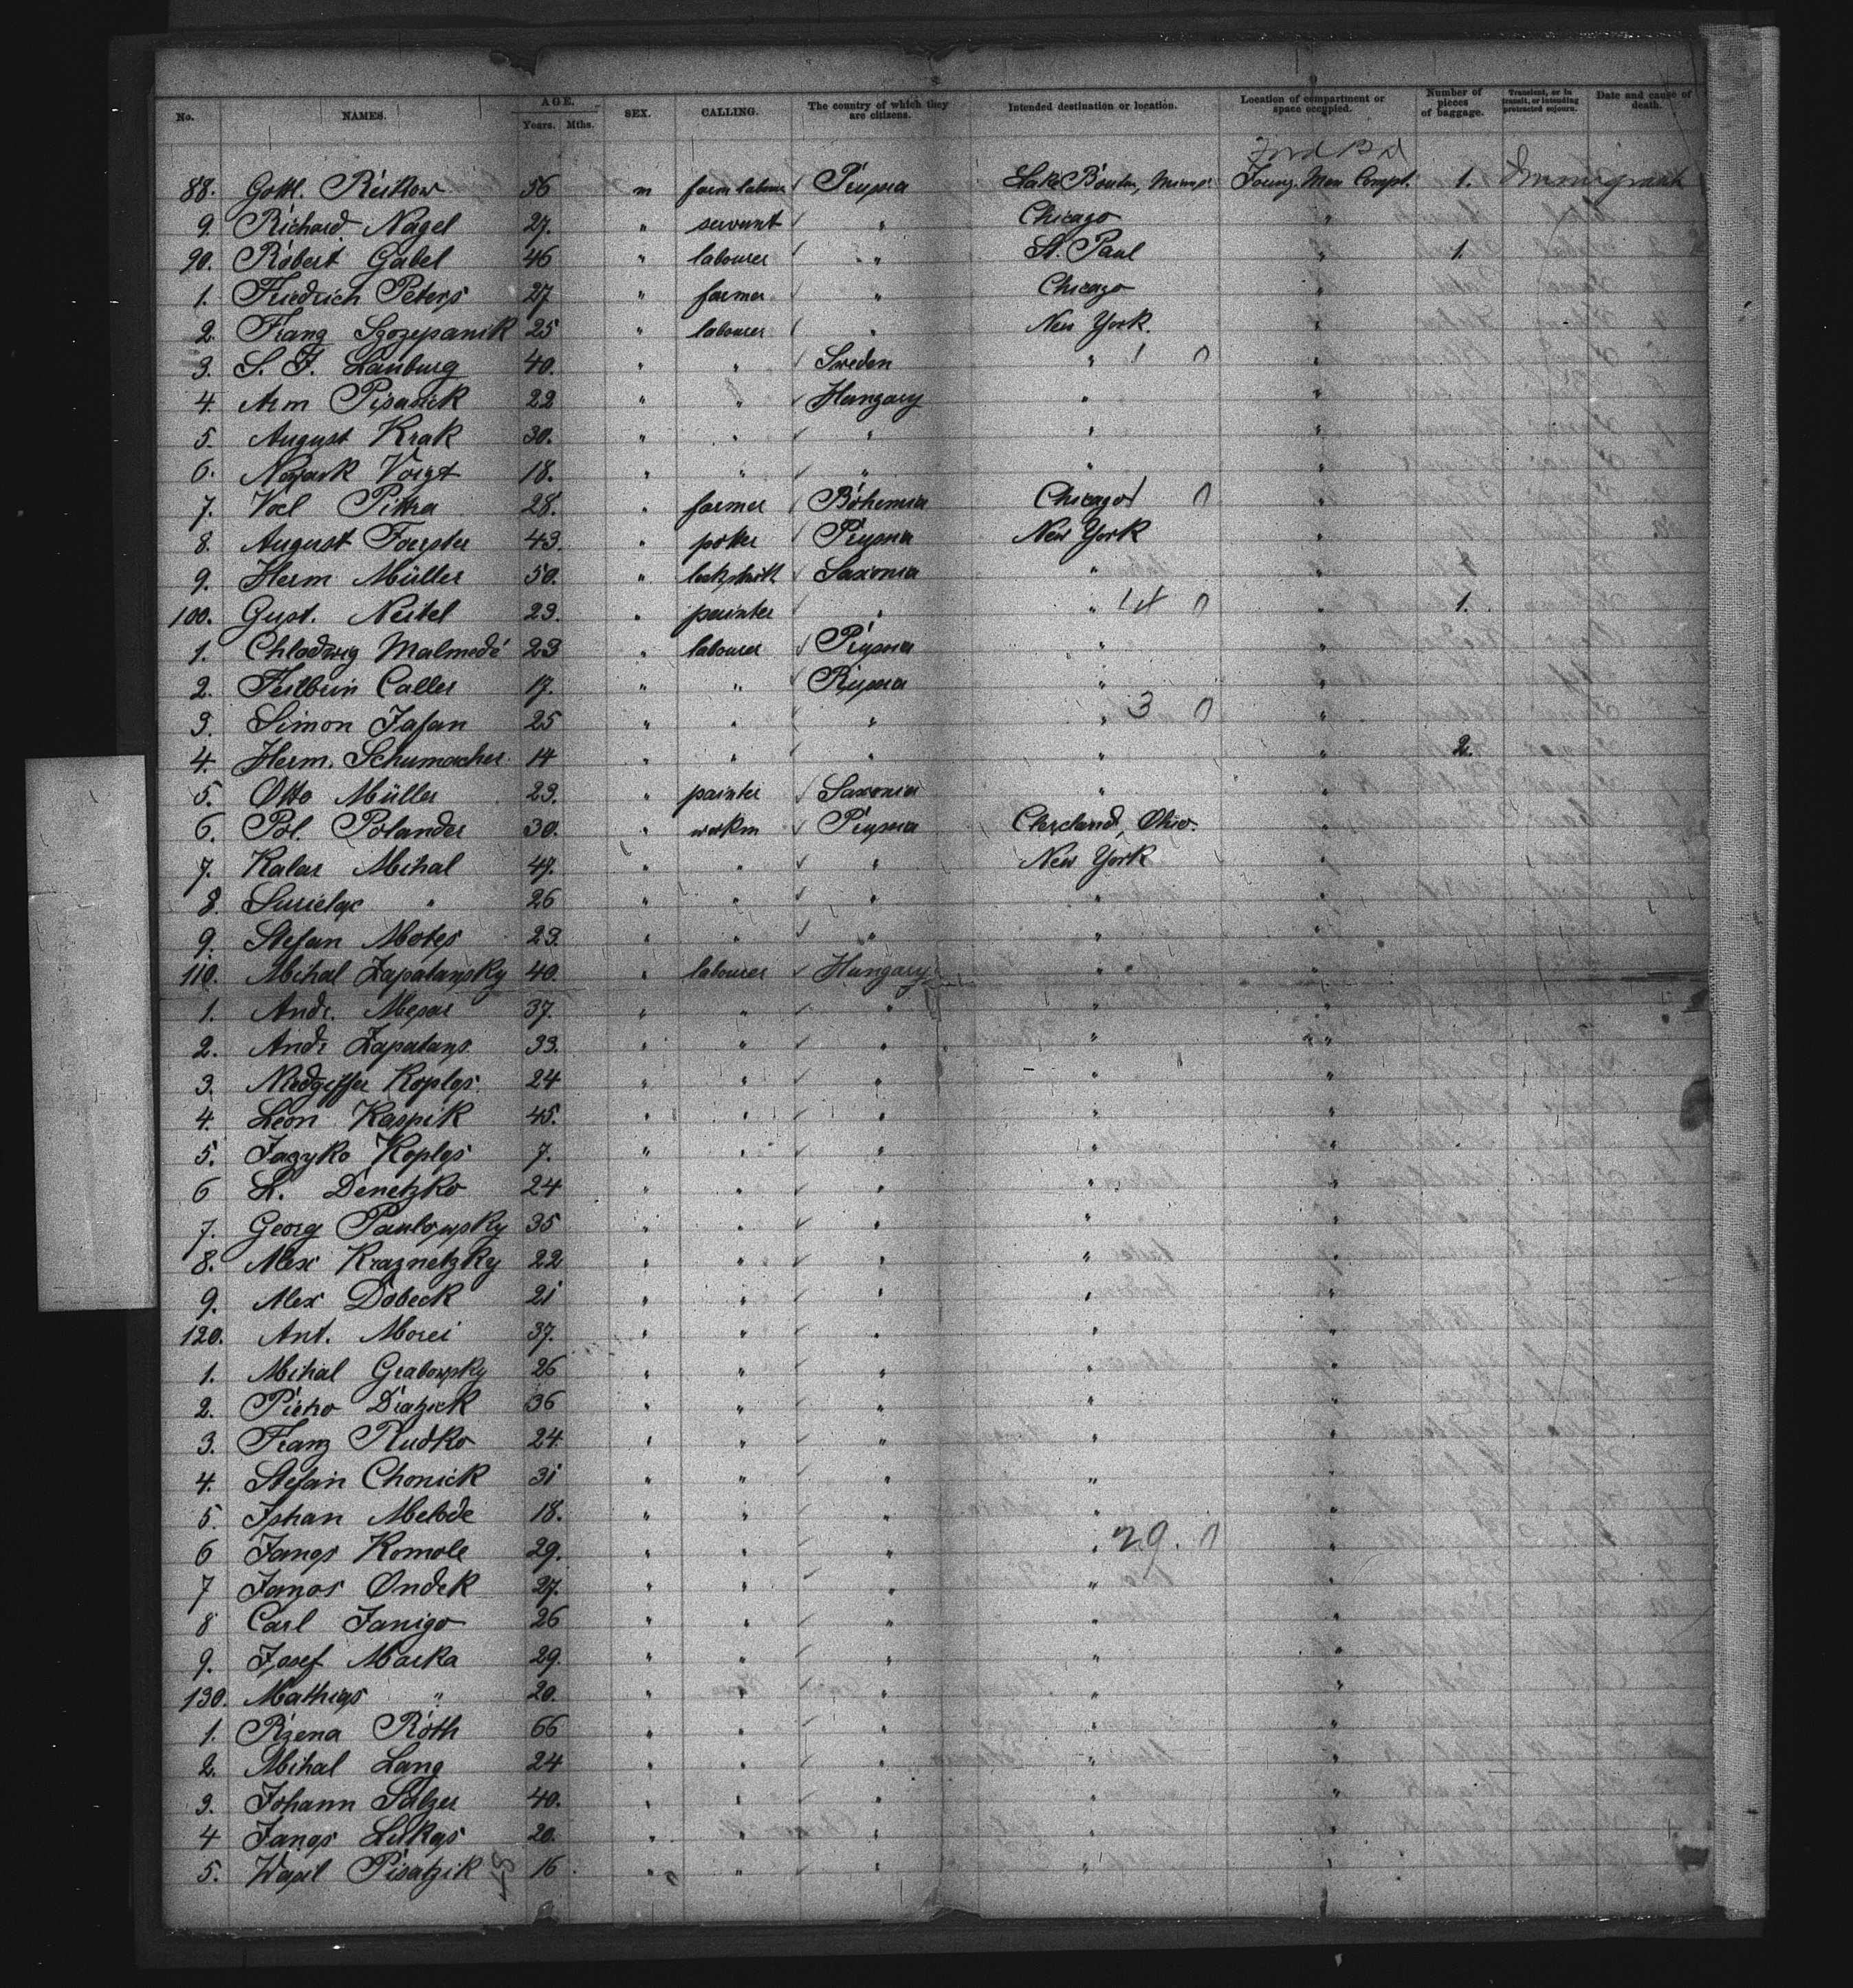 No. NAMES. AGE. Years. Mths. SEX. CALLING. The country of which they are citizens. Intended destination or location. Location of compartment or space occupied. Number of pieces of baggage. Transient, or in transit, or intending protracted sojourn. Date and cause of death.
88. Gottl. 56 m farm labour Prussia Lake Young Men Compt. 1. Immigrant
9. Richard Nagel 27. " servant " Chicago "
90. Robert Gabel 46 " labourer " St. Paul " 1.
1. Friedrich Peters 27 " farmer " Chicago "
2. Franz Szozepanik 25 " labourer " New York. "
3. S. F. Lauburg 40. " " Sweden " "
4. Arm Pisarick 22 " " Hungary " "
5. August Krak 30. " " " " "
6. Voigt 18. " " " " "
7. Pittra 28. " farmer Bohemia Chicago "
8. August Foerster 43. " potter Prussia New York "
9. Herm Müller 50. " lockshmith Saxonia " "
100. Gust. Neitel 23. " painter " " 14 " 1.
1. Chlodwig Malmedé 23 " labourer Prussia " "
2. Caller 17. " " Russia " "
3. Simon Jafan 25 " " " " 3 "
4. Herm. Schumacher 14 " " " " " 2.
5. Otto Müller 23. " painter Saxonia " "
6. Pol. Polander 30. " workm Prussia Cleveland, Ohio. "
7. Kalar Mihal 47. " " " New York "
8. " 26 " " " " "
9. Stefan Motes 23. " " " " "
110. Mihal Zapatansky 40. " labourer Hungary " "
1. Andr. Mesar 37. " " " " "
2. Andr Zapatans 33. " " " " "
3. Koplos 24 " " " " "
4. Leon Kaspik 45. " " " " "
5. Jazyko Koplos 7. " " " " "
6 L. Denetzko 24 " " " " "
7. Georg Pawlowsky 35 " " " " "
8. Alex Kraznetzky 22 " " " " "
9. Alex Dobeck 21 " " " " "
120. Ant. Morei 37. " " " " "
1. Mihal Grabowsky 26 " " " " "
2. Pietro Diatzick 36 " " " " "
3. Franz Rudko 24 " " " " "
4. Stefan Chonick 31 " " " " "
5. Ishan Melode 18. " " " " "
6 Janos Komole 29. " " " " 29. "
7 Janos Ondek 27. " " " " "
8 Carl Janigo 26 " " " " "
9. Josef Marka 29. " " " " "
130. Mathias " 20. " " " " "
1. Rzena Roth 66 " " " " "
2. Mihal Lang 24 " " " " "
3. Johann Salzer 40. " " " " "
4 Janos Lukas 20. " " " " "
5. Wasil Pisatzik 16 " " " " "